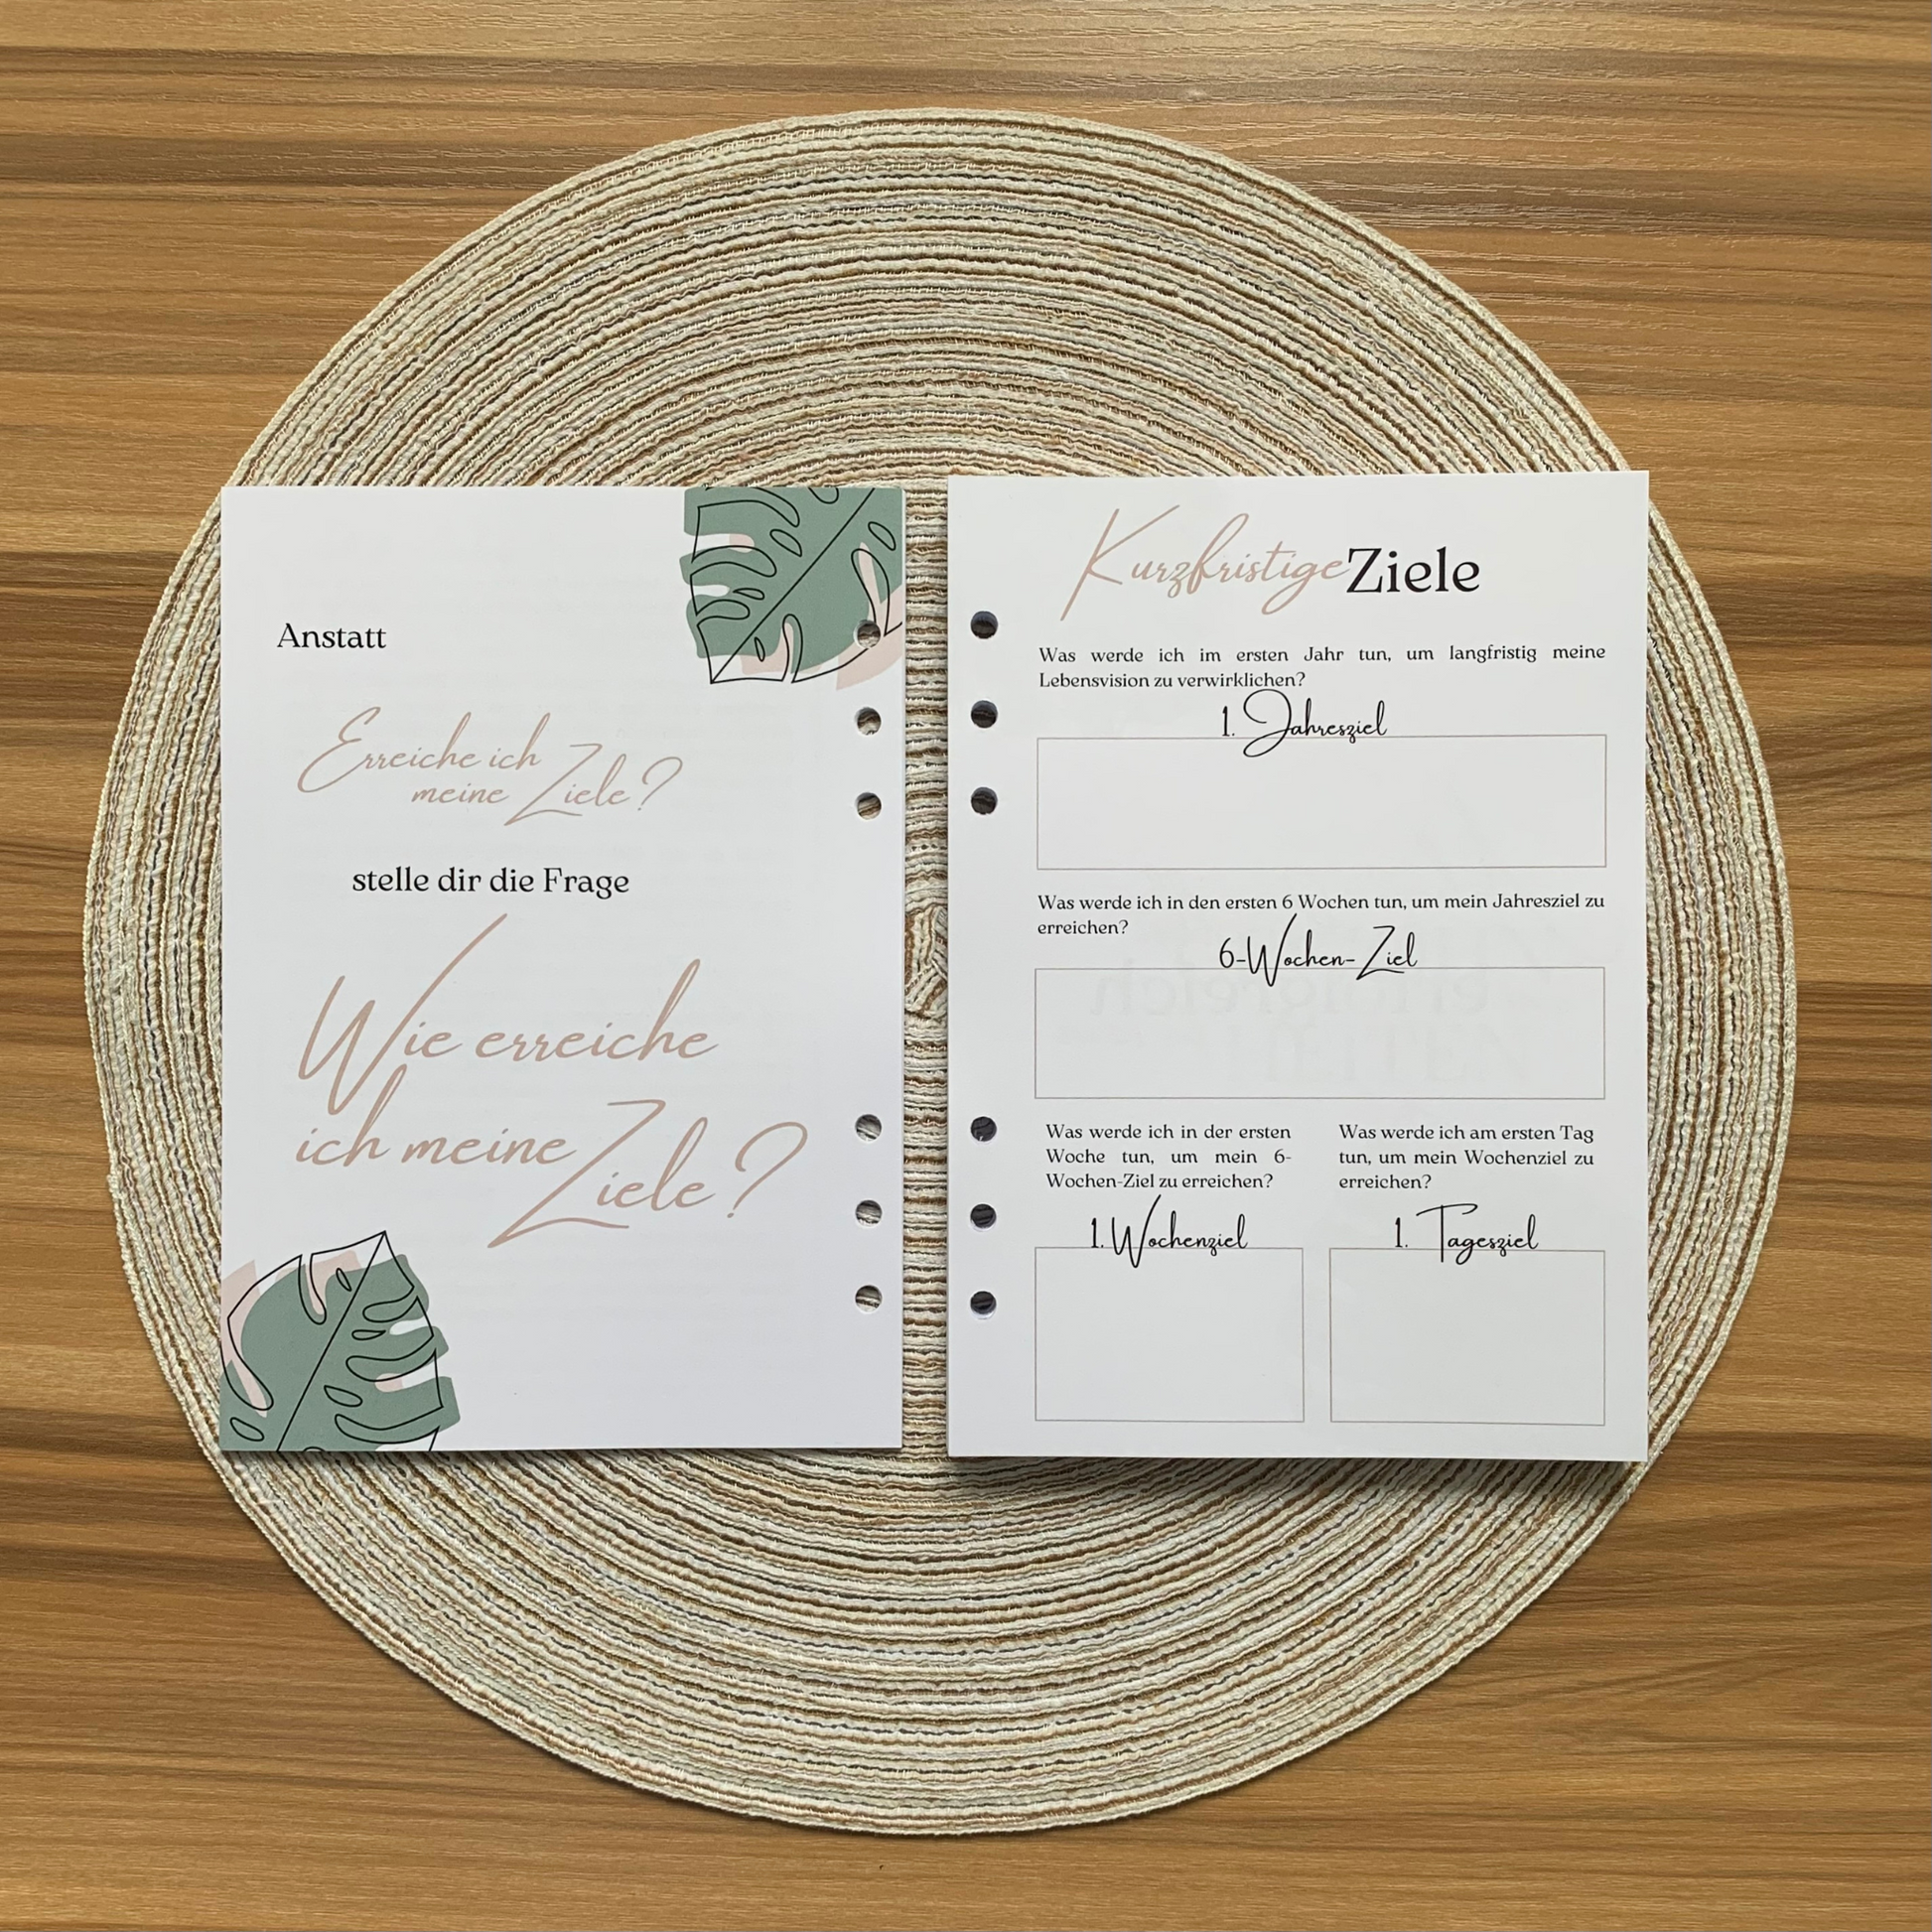 Anstatt
Erreiche ich
meine Ziele?
stelle dir die Frage
Wie erreiche
ich meine
Ziele?
Kurzfristige Ziele
Was werde ich im ersten Jahr tun, um langfristig meine
Lebensvision zu verwirklichen?
1. Jahresziel
Was werde ich in den ersten 6 Wochen tun, um mein Jahresziel zu
erreichen?
6-Wochen-Ziel
Was werde ich in der ersten
Woche tun, um mein 6-
Wochen-Ziel zu erreichen?
1. Wochenziel
Was werde ich am ersten Tag
tun, um mein Wochenziel zu
erreichen?
1. Tagesziel